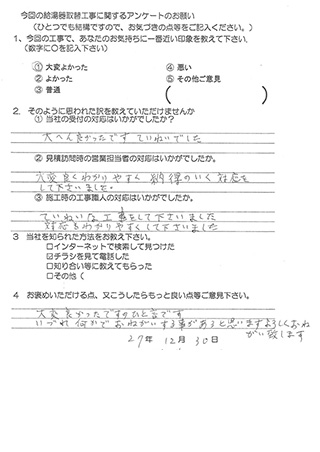 今回の給湯器取替工事に関するアンケートのお願い
(ひとつでも結構ですので、お気づきの点等をご記入ください。)
1、今回の工事で、あなたのお気持ちに一番近い印象を教えて下さい、
(数字に○を記入下さい)
① 大変よかった ④ 悪い
② よかった ⑤ その他ご意見
③ 普通 ( )
2. そのように思われた訳を教えていただけませんか
① 当社の受付の対応はいかがでしたか?
大へん良かったです ていねいでした
② 見積訪問時の営業担当者の対応はいかがでしたか。
大変良くわかりやすく 納得のいく対応を
して下さいました。
③ 施工時の工事職人の対応はいかがでしたか。
ていねいな工事をして下さいました
対応もわかりやすくして下さいました
3 当社を知られた方法をお教え下さい。
□インターネットで検索して見つけた
☑チラシを見て電話した
□知り合い等に教えてもらった
□その他 (
4 お褒めいただける点、又こうしたらもっと良い点等ご意見下さい。
大変良かったですのひと言です
いづれ 何かで おねがいする事があると思いますよろしくおね
がい致します
27年 12月 30日